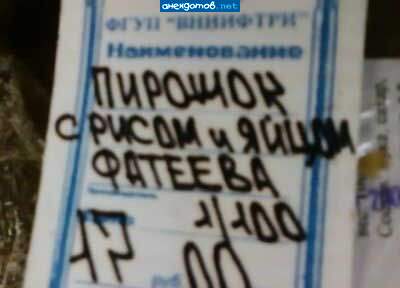 анекдотов.net
ФГУП "ВНИИФТРИ"
Наименование
ПИРОЖОК
С РИСОМ и ЯЙЦОМ
ФАТЕЕВА
1/100
17 руб 00